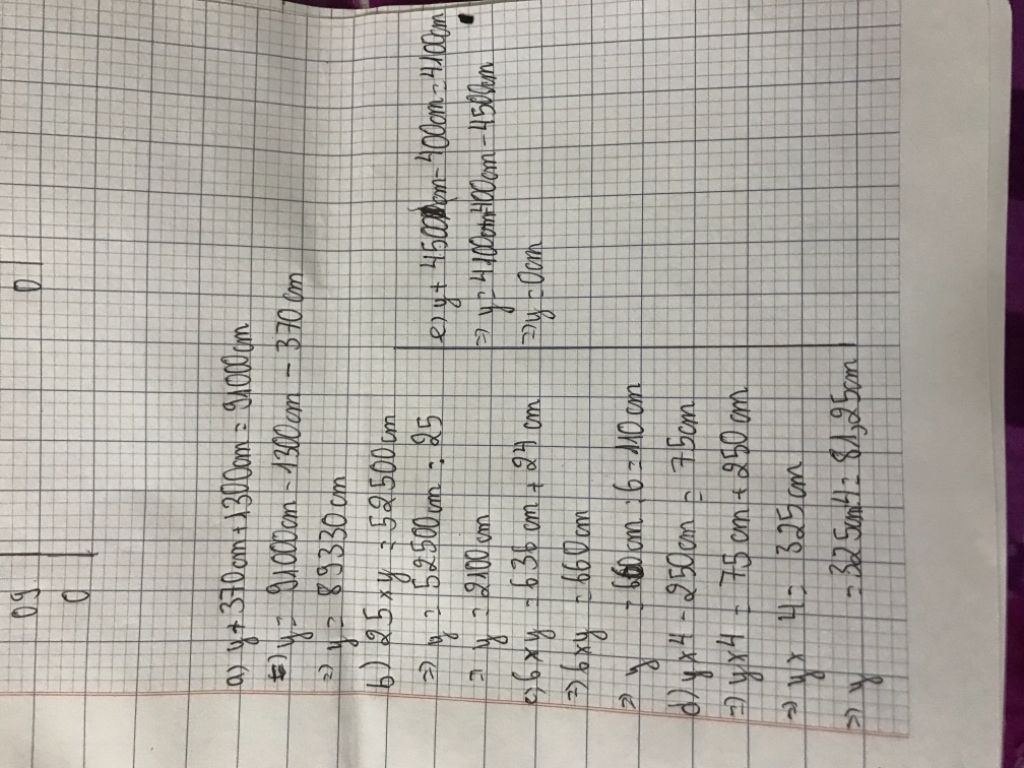 09
0
0
a) y+370cm+1300cm=91000cm
=> y= 91000cm-1300cm - 370cm
=> y= 89330cm
b) 25 x y = 52500cm
=> y = 52500cm : 25
=> y = 2100cm
c) 6 x y = 636cm + 24cm
=> 6 x y = 660cm
=> y = 660cm : 6 = 110cm
d) y x 4 - 250cm = 75cm
=> y x 4 = 75cm + 250cm
=> y x 4 = 325cm
=> y = 325cm:4 = 81,25cm
e) y + 4500cm - 400cm = 4100cm
=> y = 4100cm+400cm - 4500cm
=> y = 0cm